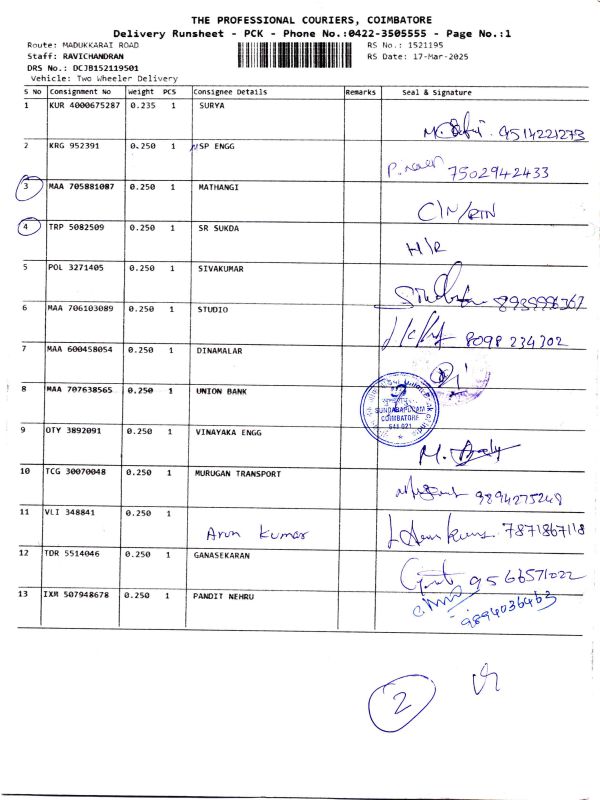 THE PROFESSIONAL COURIERS, COIMBATORE
Delivery Runsheet - PCK - Phone No.:0422-3505555 - Page No.:1
Route: MADUKKARAI ROAD RS No.: 1521195
Staff: RAVICHANDRAN RS Date: 17-Mar-2025
DRS No.: DCJB152119501
Vehicle: Two Wheeler Delivery
S No Consignment No Weight PCS Consignee Details Remarks Seal & Signature
1 KUR 4000675287 0.235 1 SURYA
9514221273
2 KRG 952391 0.250 1 SP ENGG
7502942433
3 MAA 705881087 0.250 1 MATHANGI
C/N/RTN
4 TRP 5082509 0.250 1 SR SUKDA
H/R
5 POL 3271405 0.250 1 SIVAKUMAR
6 MAA 706103089 0.250 1 STUDIO
8098 234302
7 MAA 600458054 0.250 1 DINAMALAR
8 MAA 707638565 0.250 1 UNION BANK
SUNDARAPURAM
COIMBATORE
641 021
9 OTY 3892091 0.250 1 VINAYAKA ENGG
M.
10 TCG 30070048 0.250 1 MURUGAN TRANSPORT
9894275248
11 VLI 348841 0.250 1
Arun Kumar 7871867118
12 TDR 5514046 0.250 1 GANASEKARAN
9566571022
13 IXM 507948678 0.250 1 PANDIT NEHRU
9894036463
2